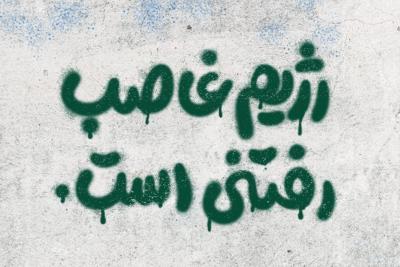 رژیم غاصب
رفتنی است.